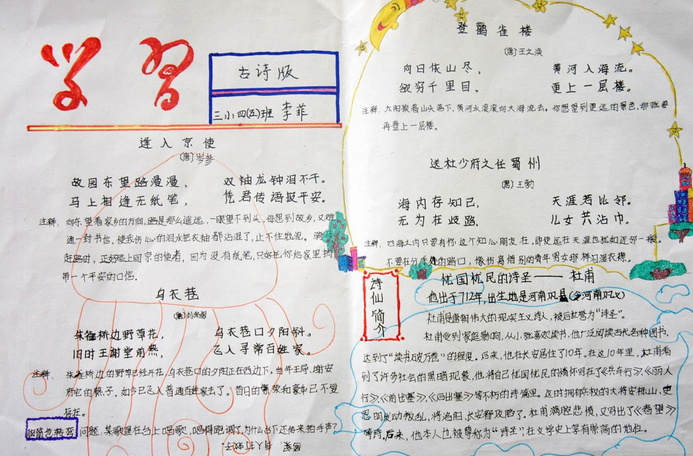 学习
古诗版
三小四(五)班 李菲
逢入京使
(唐)岑参
故园东望路漫漫, 双袖龙钟泪不干。
马上相逢无纸笔, 凭君传语报平安。
注释: 向东望着家乡的方向,路是那么遥远,一眼望不到头,每想到故乡,又难
逢一封书信,使我伤心的泪水把衣袖都沾湿了,止不住地流。骑
赶路时,正好碰上回京的使者,因为没有纸笔,只好把你给家里带
带一个平安的口信。
乌衣巷
(唐)刘禹锡
朱雀桥边野草花, 乌衣巷口夕阳斜。
旧时王谢堂前燕, 飞入寻常百姓家。
注释: 朱雀桥边的野草已经开花,乌衣巷口的夕阳正在西边下,当年王导、谢安
如今已飞入普通百姓家去了。昔日的繁荣和豪华已不复
存在。
问题:某歌星在台上唱歌,唱得跑调了,为什么台下还传来掌声?
登鹳雀楼
(唐)王之涣
向日依山尽, 黄河入海流。
欲穷千里目, 更上一层楼。
注释: 太阳挨着山头落下,黄河水滚滚向大海流去。你想望到更远的景色,那就要
再登上一层楼。
送杜少府之任蜀州
(唐)王勃
海内存知己, 天涯若比邻。
无为在歧路, 儿女共沾巾。
注释: 四海之内只要有你这个知心朋友在,即使远在天涯也犹如近邻一般。
不要在分手的路口,像伤离惜别的青年男女那样泪湿衣襟。
诗仙简介
忧国忧民的诗圣——杜甫
他出于712年,出生地是河南巩县(今河南巩义)
杜甫是唐朝伟大的现实主义诗人,被后世誉为“诗圣”。
杜甫受到家庭影响,从小就喜欢读书,他广泛阅读古今各种图书,
达到了“读书破万卷”的程度。后来,他在长安居住了10年。在这10年里,杜甫看
到了许多社会的黑暗现象,他将自己忧国忧民的情怀写在了《兵车行》《丽人
行》《前出塞》《后出塞》等不朽的诗篇里。及时拥有兵权的大将安禄山、史
思明发动叛乱,将洛阳、长安都攻陷了。杜甫满腔悲愤,又写出了《春望》
等诗。后来,他本人也被尊称为“诗圣”,在文学史上享有崇高的地位。